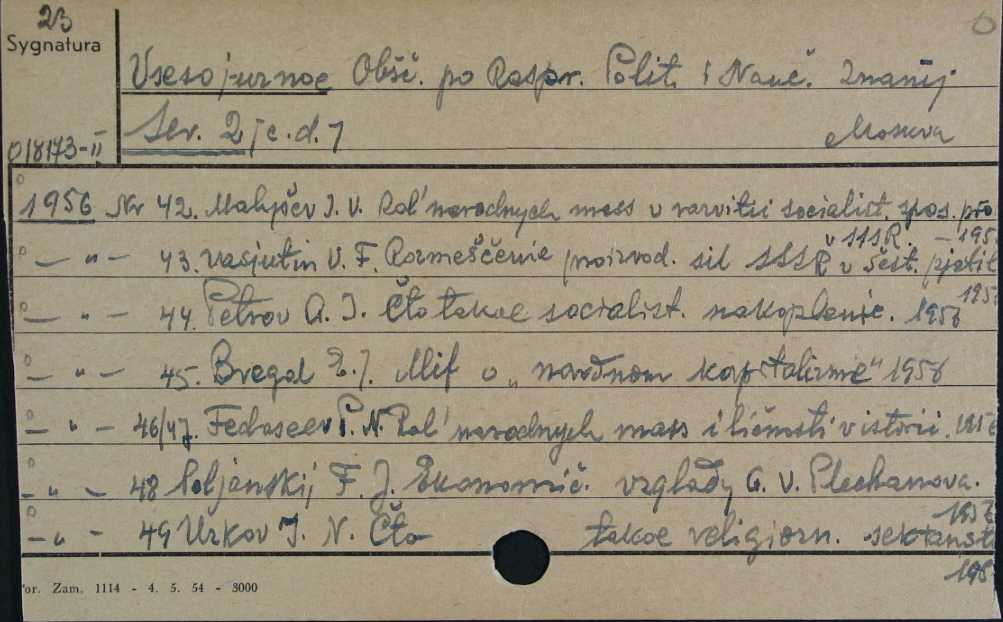 23
Sygnatura
6
Vsesojuznoe Obšč. po Raspr. Polit. i Nauč. Znanij
Ser. 2 /c.d./
Moskva
018173-II
1956 Nr 42. I. V. Rol' narodnych mass v razvitii socialist. spos. pro
v SSSR. - 195
— " — 43. Vasjutin V. F. Razmeščenie proizvod. sil SSSR v šest. pjatil
195
— " — 44. Petrov A. I. Čto takoe socialist. nakoplenie. 1956
— " — 45. Bregel E. J. Mif o „narodnom kapitalizme" 1956
— " — 46/47. Fedoseev P. N. Rol' narodnych mass i ličnosti v istorii. 195
— " — 48 Poljanskij F. J. Ekonomič. vzgljady G. V. Plechanova.
195
— " — 49 Urkov I. N. Čto takoe religiozn. sektanst
195
or. Zam. 1114 - 4. 5. 54 - 3000